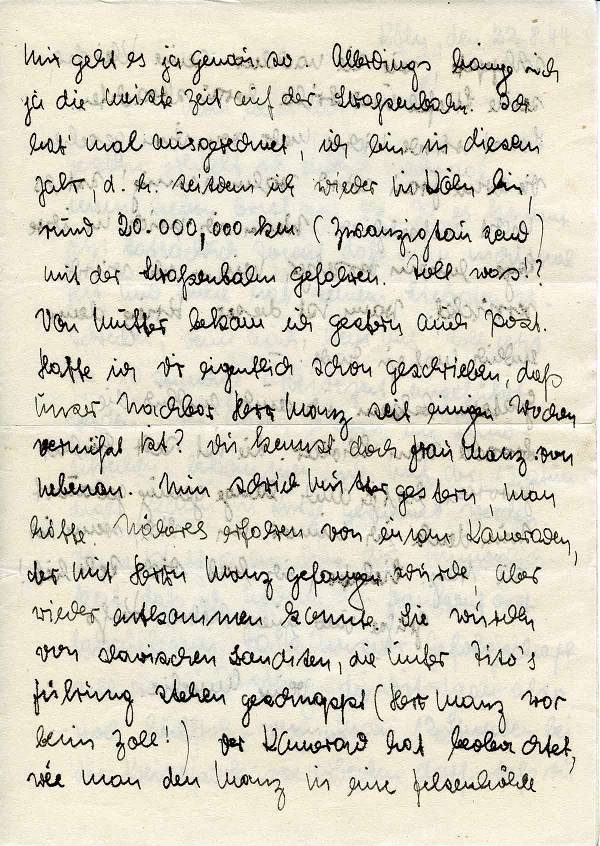 Mir geht es ja genau so. Allerdings hänge ich
ja die meiste Zeit auf der Straßenbahn.
hat mal ausgerechnet, ich bin in diesem
Jahr, d. h. seitdem ich wieder in Köln bin,
rund 20.000,000 km (zwanzigtausend)
mit der Straßenbahn gefahren. Toll was!?
Von Mutter bekam ich gestern auch Post.
Hatte ich Dir eigentlich schon geschrieben, daß
unser Nachbar Herr Manz seit einigen Wochen
vermißt ist? Du kennst doch Frau Manz von
nebenan. Nun schrieb Mutter gestern, man
hätte Näheres erfahren von einem Kameraden,
der mit Herrn Manz gefangen wurde, aber
wieder entkommen konnte. Sie wurden
von slavischen Banditen, die unter Tito's
Führung stehen geschnappt (Herr Manz war
beim Zoll!) Der Kamerad hat beobachtet,
wie man den Manz in eine Felsenhöhle